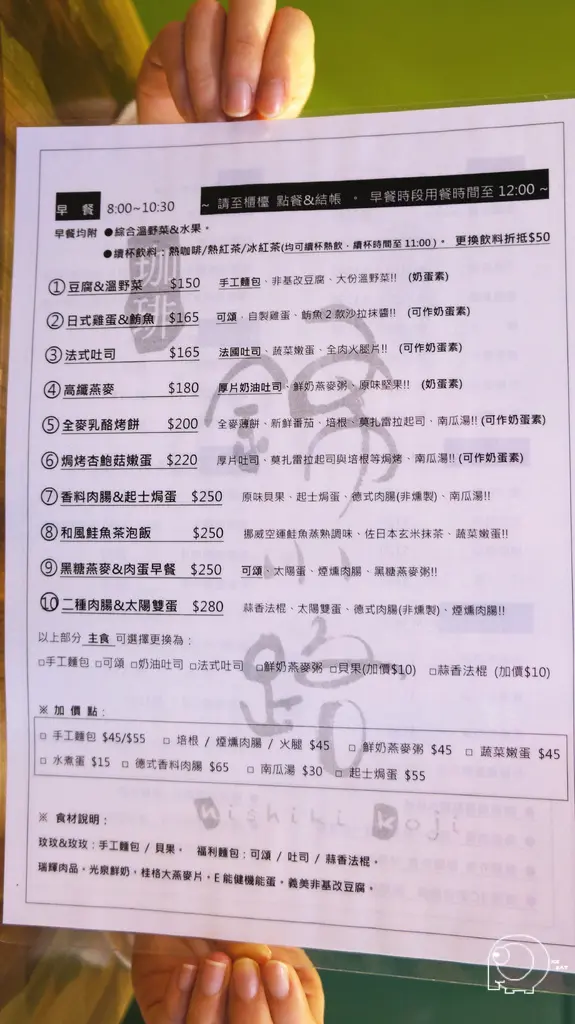 早 餐 8:00~10:30 ~ 請至櫃檯 點餐&結帳 。 早餐時段用餐時間至 12:00 ~
早餐均附 ●綜合溫野菜&水果。
●續杯飲料:熱咖啡/熱紅茶/冰紅茶(均可續杯熱飲,續杯時間至 11:00)。 更換飲料折抵$50
①豆腐&溫野菜 $150 手工麵包、非基改豆腐、大份溫野菜!! (奶蛋素)
②日式雞蛋&鮪魚 $165 可頌,自製雞蛋、鮪魚 2 款沙拉抹醬!! (可作奶蛋素)
③法式吐司 $165 法國吐司、蔬菜嫩蛋、全肉火腿片!! (可作奶蛋素)
④高纖燕麥 $180 厚片奶油吐司、鮮奶燕麥粥、原味堅果!! (奶蛋素)
⑤全麥乳酪烤餅 $200 全麥薄餅、新鮮番茄、培根、莫扎雷拉起司、南瓜湯!! (可作奶蛋素)
⑥焗烤杏鮑菇嫩蛋 $220 厚片吐司、莫扎雷拉起司與培根等焗烤、南瓜湯!! (可作奶蛋素)
⑦香料肉腸&起士焗蛋 $250 原味貝果、起士焗蛋、德式肉腸(非燻製)、南瓜湯!!
⑧和風鮭魚茶泡飯 $250 挪威空運鮭魚蒸熟調味、佐日本玄米抹茶、蔬菜嫩蛋!!
⑨黑糖燕麥&肉蛋早餐 $250 可頌、太陽蛋、煙燻肉腸、黑糖燕麥粥!!
⑩二種肉腸&太陽雙蛋 $280 蒜香法棍、太陽雙蛋、德式肉腸(非燻製)、煙燻肉腸!!
以上部分 主食 可選擇更換為:
□手工麵包 □可頌 □奶油吐司 □法式吐司 □鮮奶燕麥粥 □貝果(加價$10) □蒜香法棍 (加價$10)
※ 加 價 點:
□ 手工麵包 $45/$55 □ 培根 / 煙燻肉腸 / 火腿 $45 □ 鮮奶燕麥粥 $45 □ 蔬菜嫩蛋 $45
□ 水煮蛋 $15 □ 德式香料肉腸 $65 □ 南瓜湯 $30 □ 起士焗蛋 $55
※ 食材說明:
玟玟&玫玫:手工麵包 / 貝果。 福利麵包:可頌 / 吐司 / 蒜香法棍。
瑞輝肉品。光泉鮮奶,桂格大燕麥片。E 能健機能蛋。義美非基改豆腐。
珈琲
錦小路
Nishiki Koji